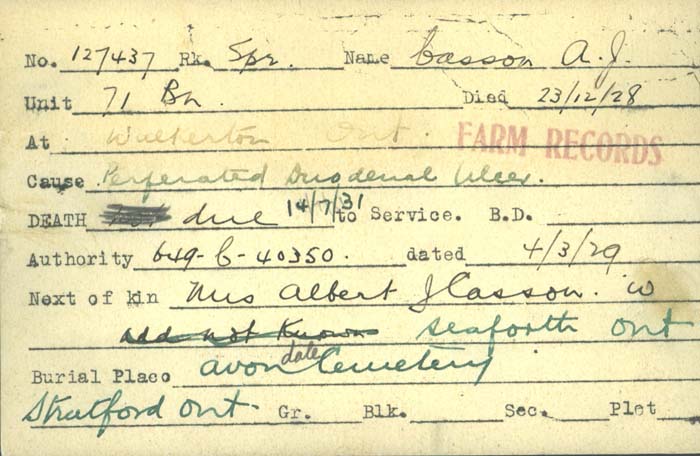 No. 127437 Rk. Spr. Name Casson A. J.
Unit 71 Bn. Died 23/12/28
At Walkerton Ont. FARM RECORDS
Cause Perforated Duodenal Ulcer.
DEATH due 14/7/31 to Service. B.D.
Authority 649-C-40350. dated 4/3/29
Next of kin Mrs Albert J Casson. W
add not Known Seaforth Ont
Burial Place Avondale Cemetery
Stratford Ont. Gr. Blk. Sec. Plot